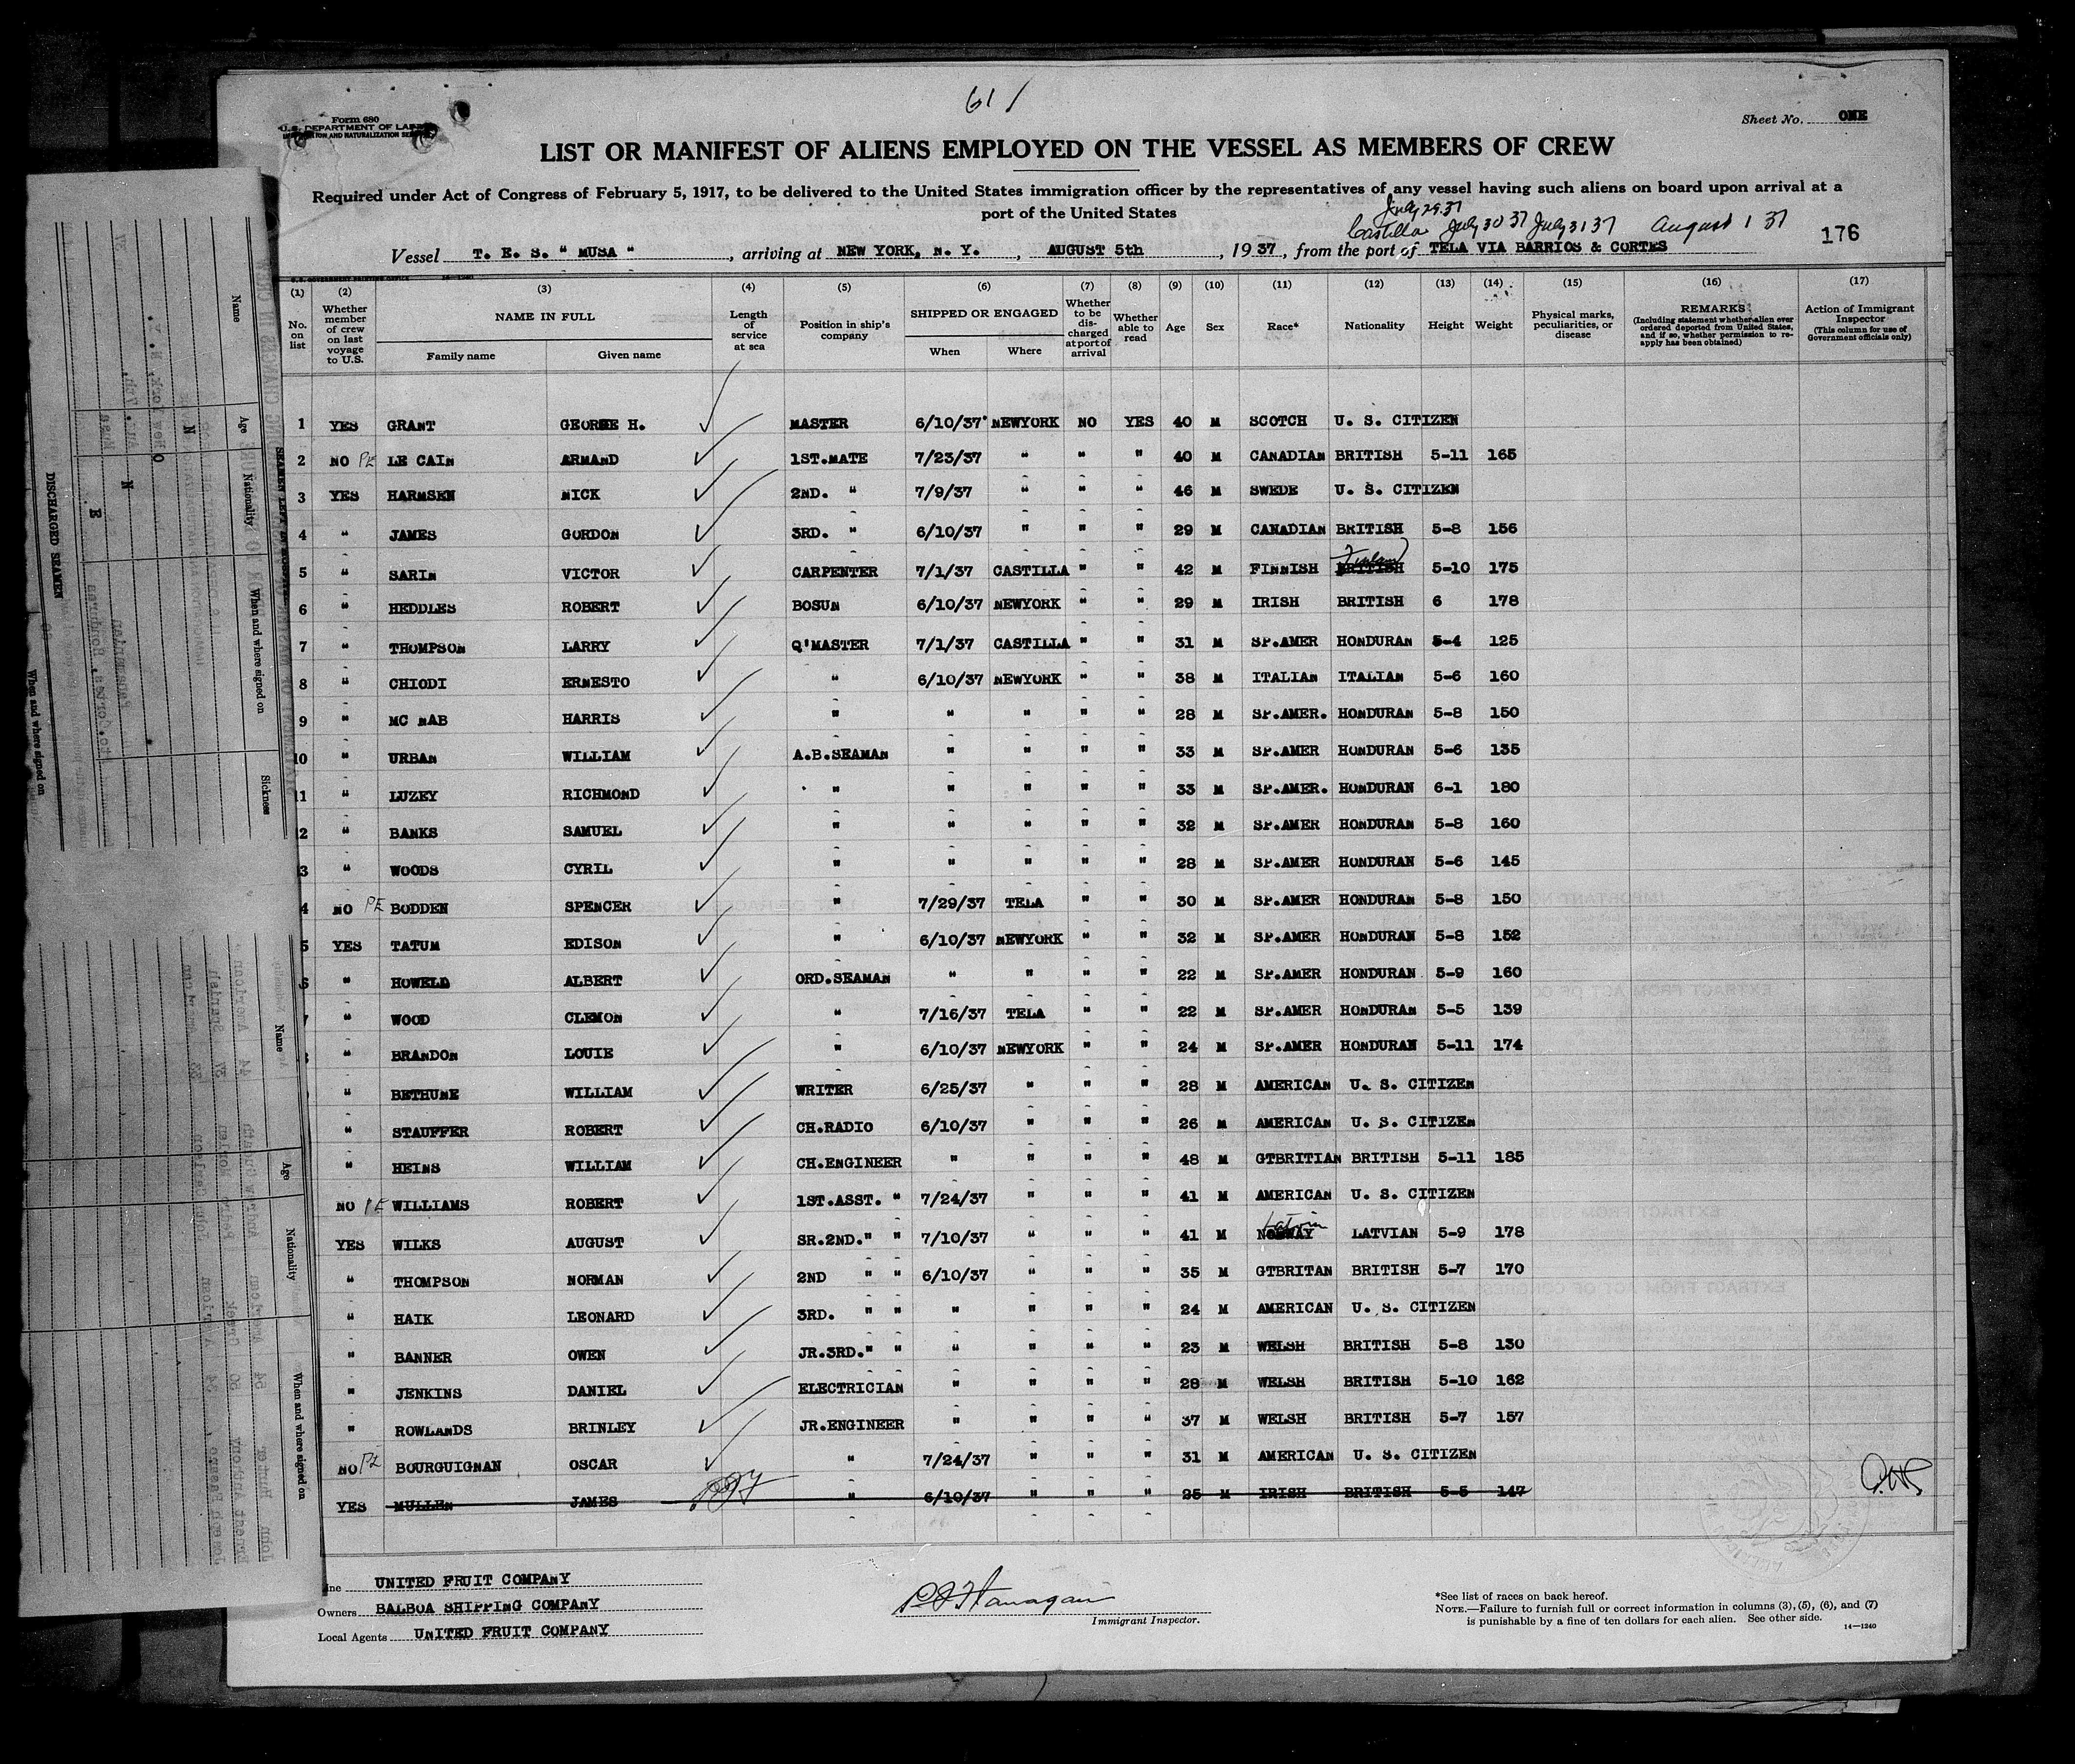 61 /
Form 680
U. S. DEPARTMENT OF LABOR
IMMIGRATION AND NATURALIZATION SERVICE
Sheet No. ONE
LIST OR MANIFEST OF ALIENS EMPLOYED ON THE VESSEL AS MEMBERS OF CREW
Required under Act of Congress of February 5, 1917, to be delivered to the United States immigration officer by the representatives of any vessel having such aliens on board upon arrival at a
port of the United States
July 29 37
Castilla July 30 37 July 31 37 August 1 37
176
Vessel T. E. S. " MUSA " , arriving at NEW YORK, N. Y. , AUGUST 5th , 19 37, from the port of TELA VIA BARRIOS & CORTES
(1) (2) (3) (4) (5) (6) (7) (8) (9) (10) (11) (12) (13) (14) (15) (16) (17)
No. on list
Whether member of crew on last voyage to U.S.
NAME IN FULL
Family name Given name
Length of service at sea
Position in ship's company
SHIPPED OR ENGAGED
When Where
Whether to be discharged at port of arrival
Whether able to read
Age Sex Race* Nationality Height Weight
Physical marks, peculiarities, or disease
REMARKS
(Including statement whether alien ever ordered deported from United States, and if so, whether permission to reapply has been obtained)
Action of Immigrant Inspector
(This column for use of Government officials only)
1 YES GRANT GEORGE H. MASTER 6/10/37 NEWYORK NO YES 40 M SCOTCH U. S. CITIZEN
2 NO PE LE CAIN ARMAND 1ST.MATE 7/23/37 " " " 40 M CANADIAN BRITISH 5-11 165
3 YES HARMSEN NICK 2ND. " 7/9/37 " " " 46 M SWEDE U. S. CITIZEN
4 " JAMES GORDON 3RD. " 6/10/37 " " " 29 M CANADIAN BRITISH 5-8 156
5 " SARIN VICTOR CARPENTER 7/1/37 CASTILLA " " 42 M FINNISH BRITISH Finland 5-10 175
6 " HEDDLES ROBERT BOSUN 6/10/37 NEWYORK " " 29 M IRISH BRITISH 6 178
7 " THOMPSON LARRY Q'MASTER 7/1/37 CASTILLA " " 31 M SP.AMER HONDURAN 5-4 125
8 " CHIODI ERNESTO " 6/10/37 NEWYORK " " 38 M ITALIAN ITALIAN 5-6 160
9 " MC NAB HARRIS " " " " " 28 M SP.AMER. HONDURAN 5-8 150
10 " URBAN WILLIAM A.B.SEAMAN " " " " 33 M SP.AMER HONDURAN 5-6 135
11 " LUZEY RICHMOND " " " " " 33 M SP.AMER. HONDURAN 6-1 180
2 " BANKS SAMUEL " " " " " 32 M SP.AMER HONDURAN 5-8 160
3 " WOODS CYRIL " " " " " 28 M SP.AMER HONDURAN 5-6 145
4 NO PE BODDEN SPENCER " 7/29/37 TELA " " 30 M SP.AMER HONDURAN 5-8 150
5 YES TATUM EDISON " 6/10/37 NEWYORK " " 32 M SP.AMER HONDURAN 5-8 152
6 " HOWELL ALBERT ORD.SEAMAN " " " " 22 M SP.AMER HONDURAN 5-9 160
" WOOD CLEMON " 7/16/37 TELA " " 22 M SP.AMER HONDURAN 5-5 139
" BRANDON LOUIE " 6/10/37 NEWYORK " " 24 M SP.AMER HONDURAN 5-11 174
" BETHUNE WILLIAM WRITER 6/25/37 " " " 28 M AMERICAN U. S. CITIZEN
" STAUFFER ROBERT CH.RADIO 6/10/37 " " " 26 M AMERICAN U. S. CITIZEN
" HEINS WILLIAM CH.ENGINEER " " " " 48 M GTBRITIAN BRITISH 5-11 185
NO PE WILLIAMS ROBERT 1ST.ASST. " 7/24/37 " " " 41 M AMERICAN U. S. CITIZEN
YES WILKS AUGUST SR.2ND." " 7/10/37 " " " 41 M NORWAY Latvia LATVIAN 5-9 178
" THOMPSON NORMAN 2ND " " 6/10/37 " " " 35 M GTBRITAN BRITISH 5-7 170
" HAIK LEONARD 3RD. " " " " " " 24 M AMERICAN U. S. CITIZEN
" BANNER OWEN JR.3RD." " " " " " 23 M WELSH BRITISH 5-8 130
" JENKINS DANIEL ELECTRICIAN " " " " 28 M WELSH BRITISH 5-10 162
" ROWLANDS BRINLEY JR.ENGINEER " " " " 37 M WELSH BRITISH 5-7 157
NO PE BOURGUIGNAN OSCAR " 7/24/37 " " " 31 M AMERICAN U. S. CITIZEN
YES MULLEN JAMES " 6/10/37 " " " 25 M IRISH BRITISH 5-5 147
Line UNITED FRUIT COMPANY
Owners BALBOA SHIPPING COMPANY
Local Agents UNITED FRUIT COMPANY
P J Flanagan
Immigrant Inspector.
*See list of races on back hereof.
NOTE.—Failure to furnish full or correct information in columns (3), (5), (6), and (7)
is punishable by a fine of ten dollars for each alien. See other side.
14—1240
Name Age Nationality When and where signed on Sickness
DISCHARGED SEAMEN
When and where signed on
Name Age Nationality When and where signed on